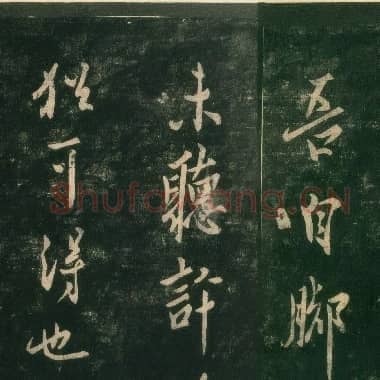 吾脚
未聽許
猶可得也
Shufawang.CN